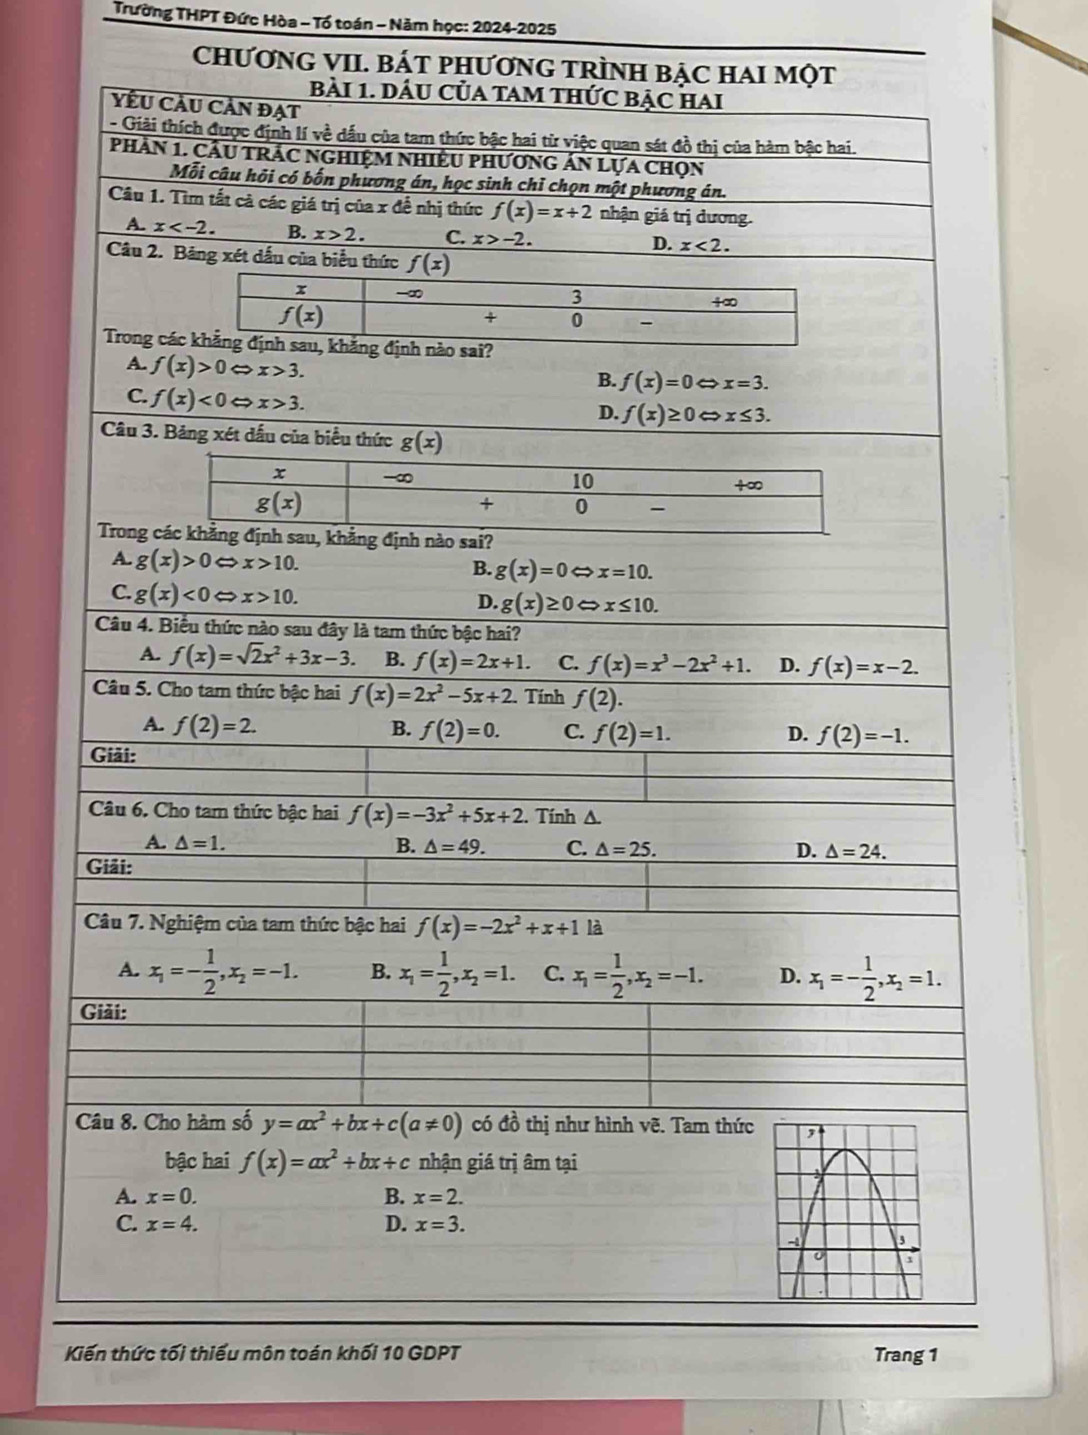 Trường THPT Đức Hòa – Tổ toán – Năm học: 2024-2025
CHƯƠNG VII. BẤT PHƯƠNG TRÌNH BẬC HAI MỘT
BÀI 1. DẤU CỦA TAM THỨC BẬC HAI
YÊU CẦU CẦN ĐẠT
- Giải thích được định lí về dấu của tam thức bậc hai từ việc quan sát đồ thị của hàm bậc hai.
PHẦN 1. CÂU TRẮC NGHIỆM NHIỀU PHƯƠNG ÁN LỰA CHỌN
Mỗi câu hỏi có bốn phương án, học sinh chỉ chọn một phương án.
Câu 1. Tìm tất cả các giá trị của x để nhị thức f(x)=x+2 nhận giá trị dương.
A. x<-2. B. x>2. C. x>-2. D. x<2.
Câu 2. Bảng xét dấu của biểu thức f(x)
x -∞ 3 +∞
f(x) + 0 −
Trong các khẳng định sau, khẳng định nào sai?
A. f(x)>0⇔x>3. B. f(x)=0⇔x=3.
C. f(x)<0⇔x>3. D. f(x)≥0⇔x≤3.
Câu 3. Bảng xét dấu của biểu thức g(x)
x -∞ 10 +∞
g(x) + 0 −
Trong các khẳng định sau, khẳng định nào sai?
A. g(x)>0⇔x>10. B. g(x)=0⇔x=10.
C. g(x)<0⇔x>10. D. g(x)≥0⇔x≤10.
Câu 4. Biểu thức nào sau đây là tam thức bậc hai?
A. f(x)=√2x²+3x−3. B. f(x)=2x+1. C. f(x)=x³−2x²+1. D. f(x)=x−2.
Câu 5. Cho tam thức bậc hai f(x)=2x²−5x+2. Tính f(2).
A. f(2)=2. B. f(2)=0. C. f(2)=1. D. f(2)=−1.
Giải:
Câu 6. Cho tam thức bậc hai f(x)=−3x²+5x+2. Tính Δ.
A. Δ=1. B. Δ=49. C. Δ=25. D. Δ=24.
Giải:
Câu 7. Nghiệm của tam thức bậc hai f(x)=−2x²+x+1 là
A. x₁=−1/2, x₂=−1. B. x₁=1/2, x₂=1. C. x₁=1/2, x₂=−1. D. x₁=−1/2, x₂=1.
Giải:
Câu 8. Cho hàm số y=ax²+bx+c(a≠0) có đồ thị như hình vẽ. Tam thức
bậc hai f(x)=ax²+bx+c nhận giá trị âm tại
A. x=0. B. x=2.
C. x=4. D. x=3.
y
3
-1 3
O x
Kiến thức tối thiểu môn toán khối 10 GDPT Trang 1